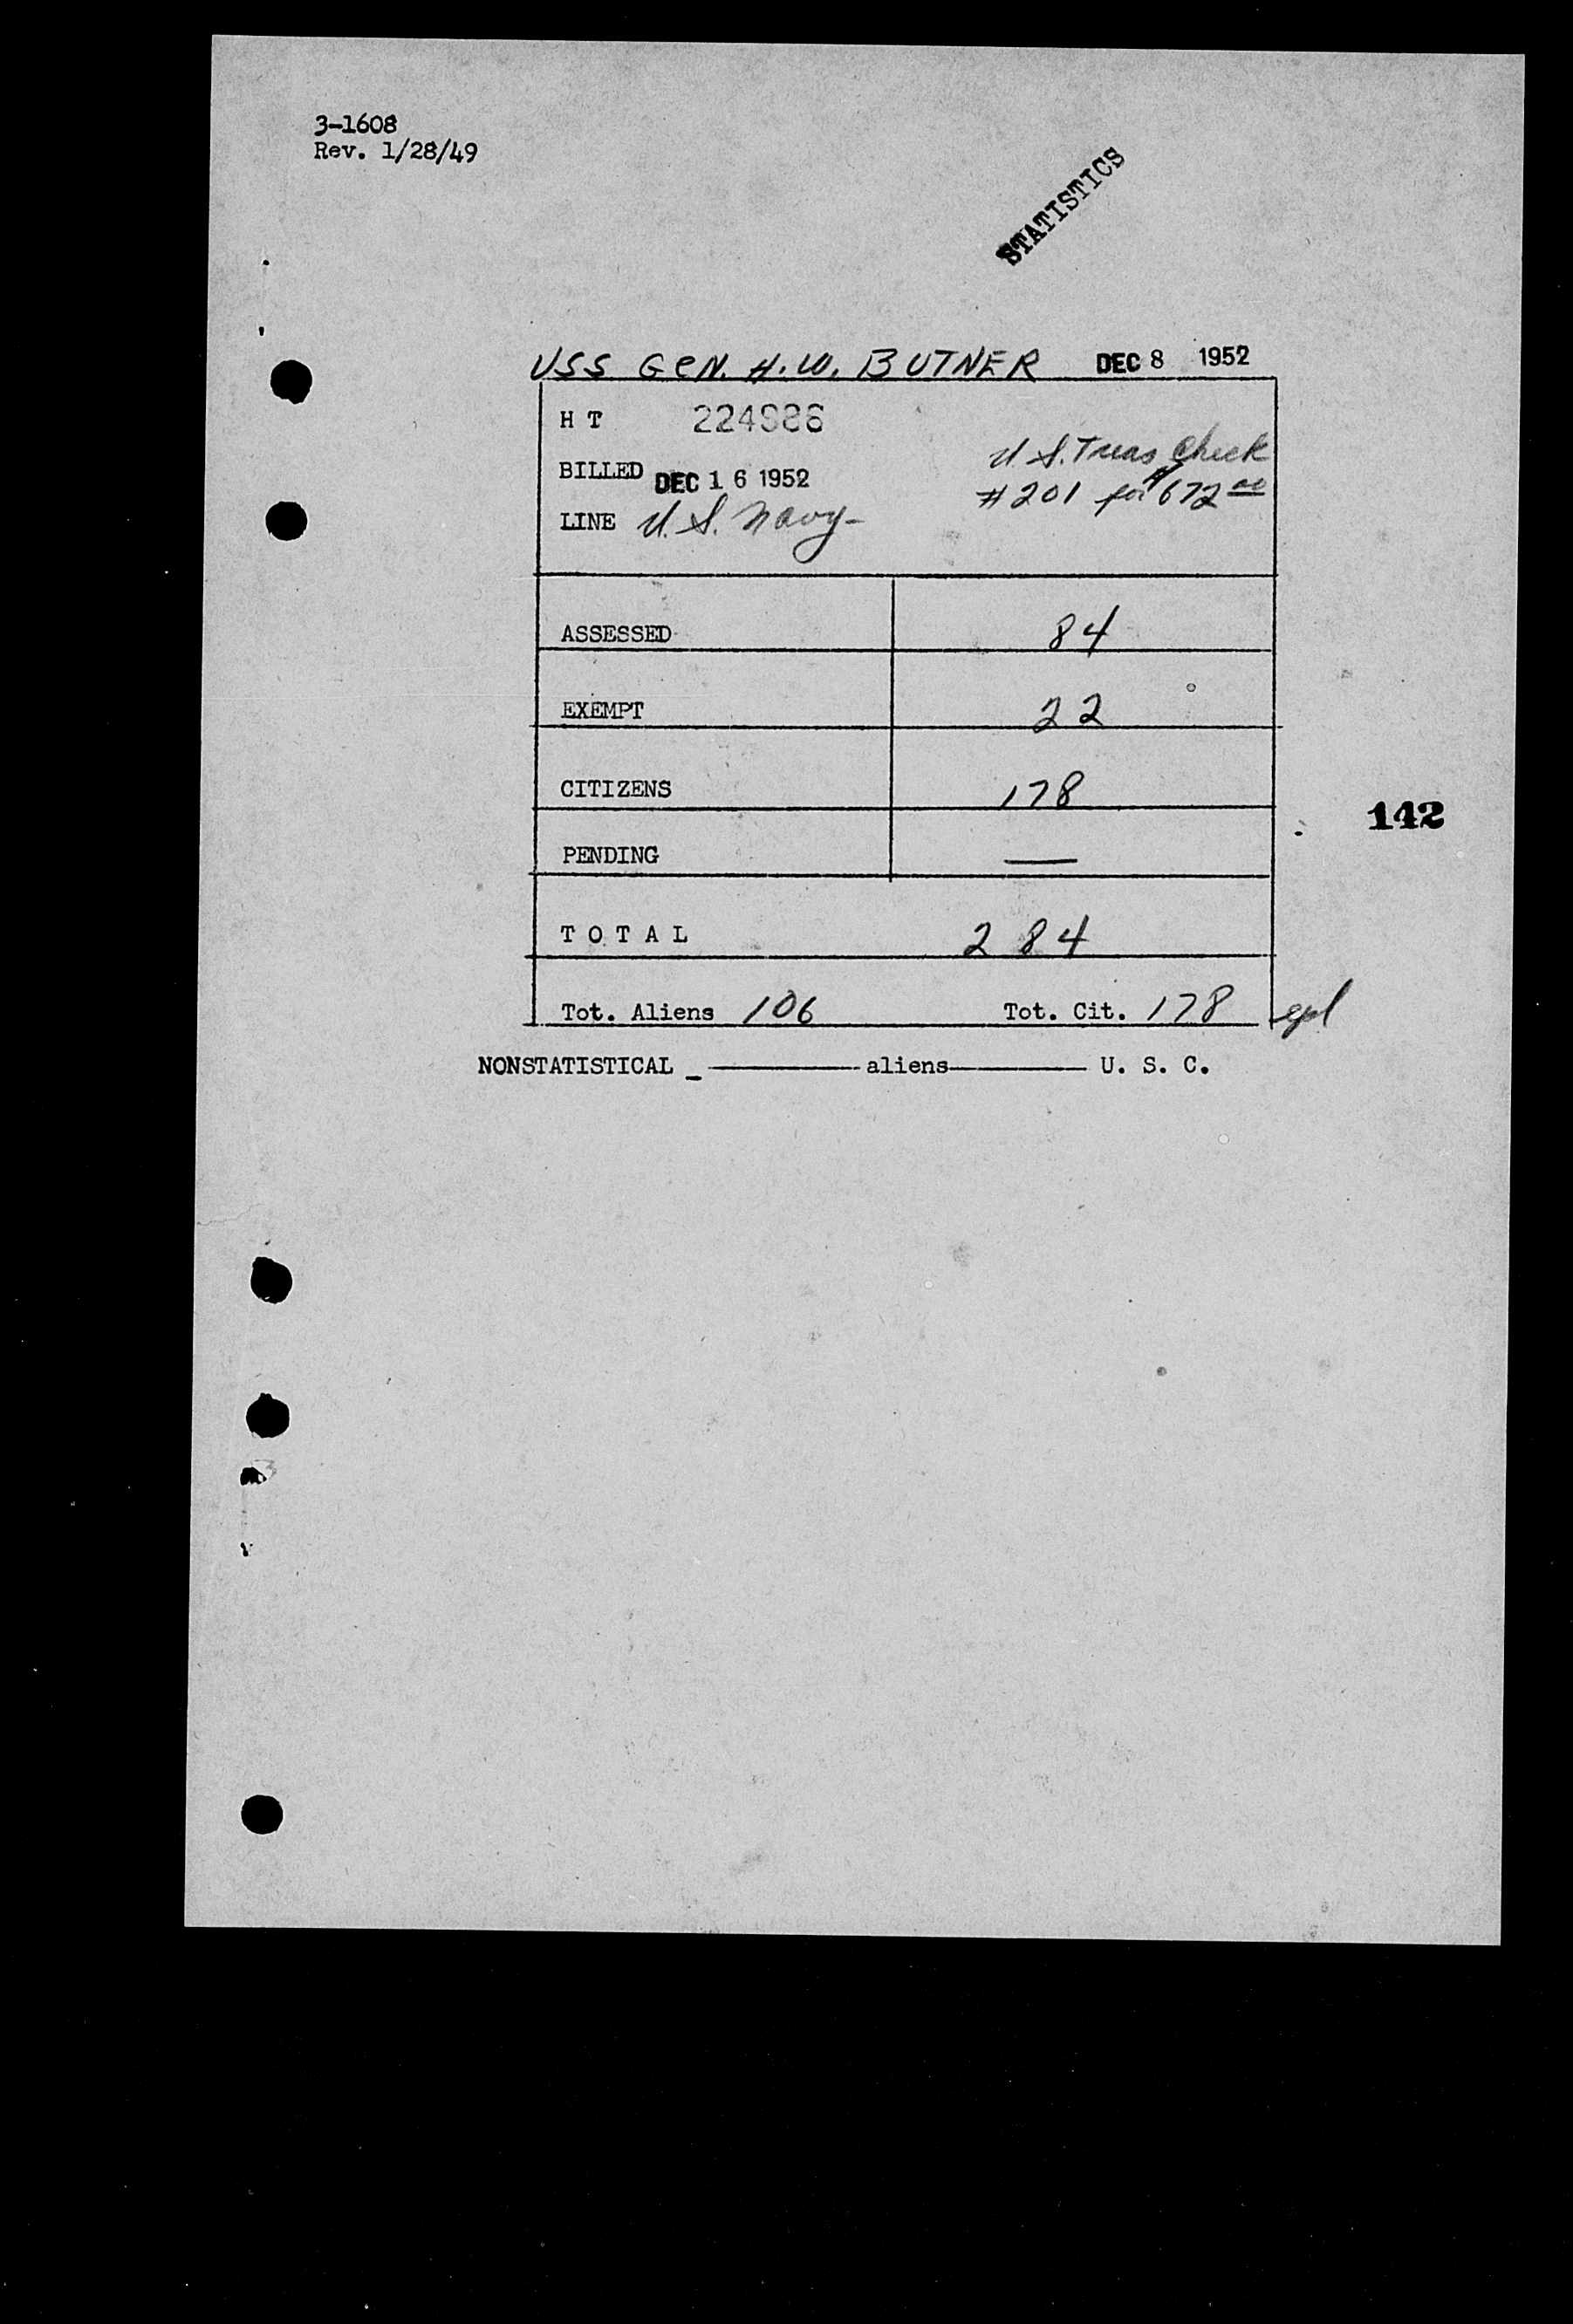 3-1608
Rev. 1/28/49
STATISTICS
USS GEN. H.W. BUTNER DEC 8 1952
H T 224986
U.S. Treas Check
BILLED DEC 16 1952
# 201 for $672 00
LINE U.S. Navy-
ASSESSED 84
EXEMPT 22
CITIZENS 178
142
PENDING —
T O T A L 284
Tot. Aliens 106 Tot. Cit. 178
NONSTATISTICAL _ ———— aliens ———— U. S. C.